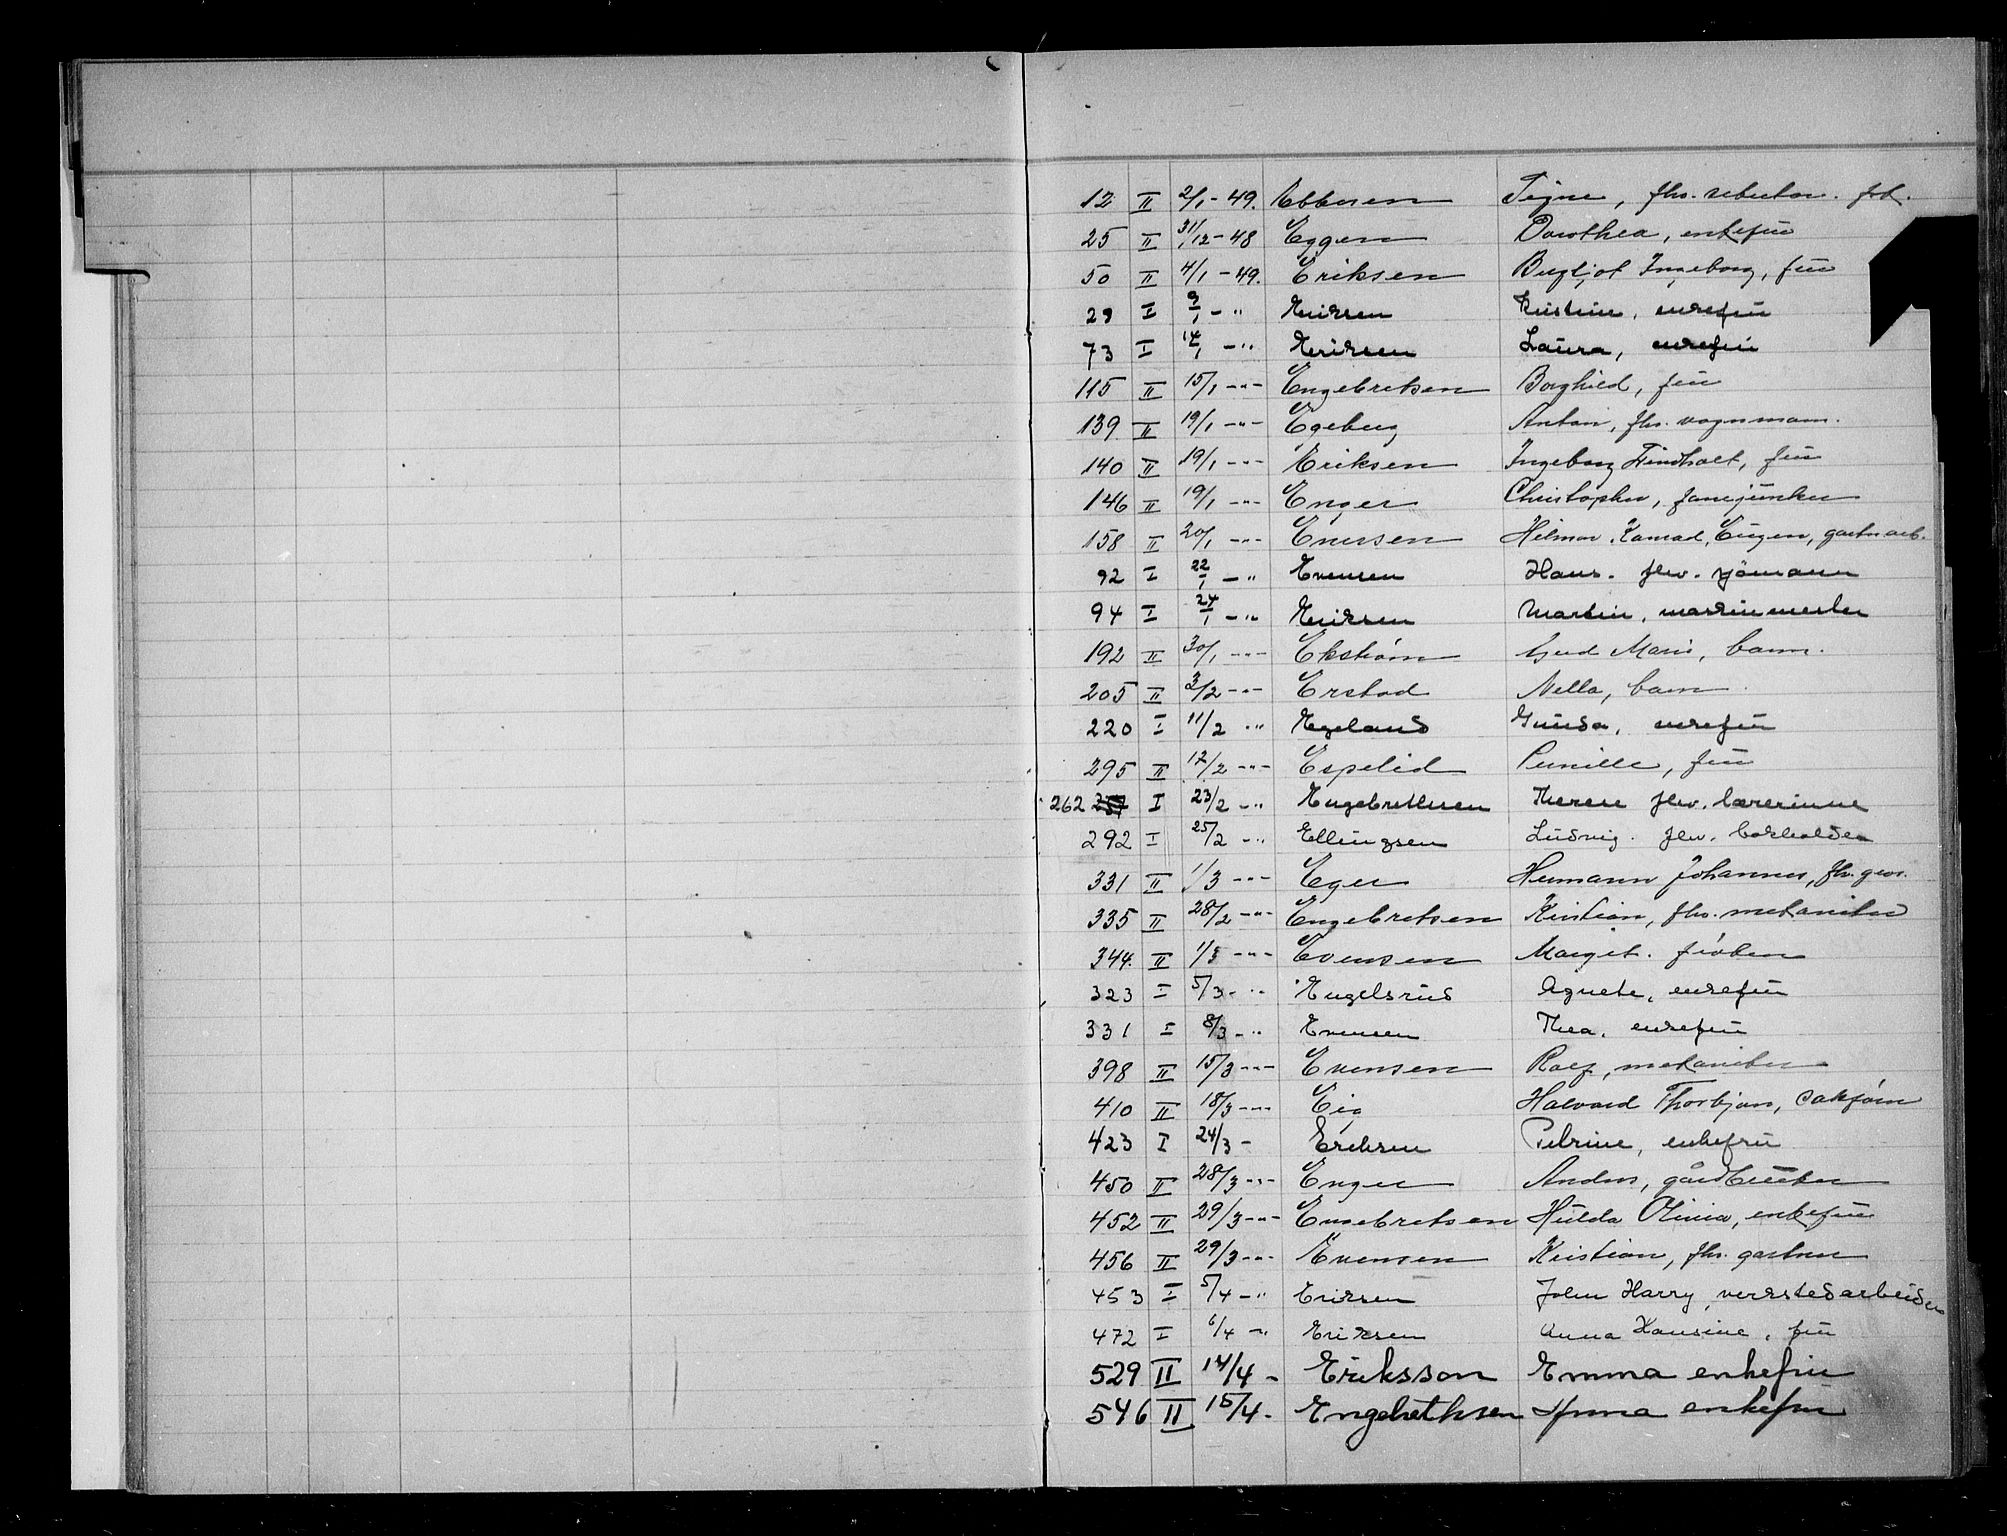 12 II 2/1 - 49. Ebbesen Signe, fhv.
25 II 31/12 - 48 Eggen Dorothea, enkefru
50 II 4/1 - 49. Eriksen Bergljot Ingeborg, fru
29 I 9/1 - " Eriksen Kristine, enkefru
73 I 14/1 - " Eriksen Laura, enkefru
115 II 15/1 -"- Engebretsen Borghild, fru
139 II 19/1 -"- Egeberg Anton, fhv. vognmann.
140 II 19/1 -"- Eriksen Ingeborg, fru
146 II 19/1 -"- Enger Christopher, fanejunker
158 II 20/1 -"- Hilmar Konrad Eugen,
92 I 22/1 - " Evensen Hans. fhv. sjömann
94 I 24/1 - " Eriksen Martin, maskinmester
192 II 30/1 -"- Ekstrøm Gerd Marie, barn.
205 II 3/2 -"- Erstad Nella, barn
220 I 11/2 " Egeland Gunda, enkefru
295 II 17/2 -"- Espelid Pernille, fru
262 I 23/2 - " Engebrethsen Therese fhv. lærerinne
292 I 25/2 - " Ellingsen Ludvig. fhv. bokholder
331 II 1/3 -"- Eger Hermann Johannes, fhv.
335 II 28/2 -"- Engebretsen Kristian, fhv. mekaniker
344. II 1/3 -"- Evensen Margit. frøken
323 I 5/3 - " Engelsrud Agnete, enkefru
331 I 8/3 - " Evensen Thea. enkefru
398 II 15/3 -"- Evensen Rolf, mekaniker
410 II 18/3 -"- Eig Halvard Thorbjørn,
423 I 24/3 - Eriksen Petrine, enkefru
450 II 28/3 -"- Enger Anders, gårdbruker
452 II 29/3 -"- Engebretsen Hulda Olivia, enkefru
456 II 29/3 -"- Evensen Kristian, fhv. gartner
453 I 5/4 - " Eriksen John Harry, verkstedarbeider
472 I 6/4 - " Eriksen Anna Hansine, fru
529 II 14/4 - Eriksson Emma enkefru
546 II 15/4 - Engebrethsen Anna enkefru